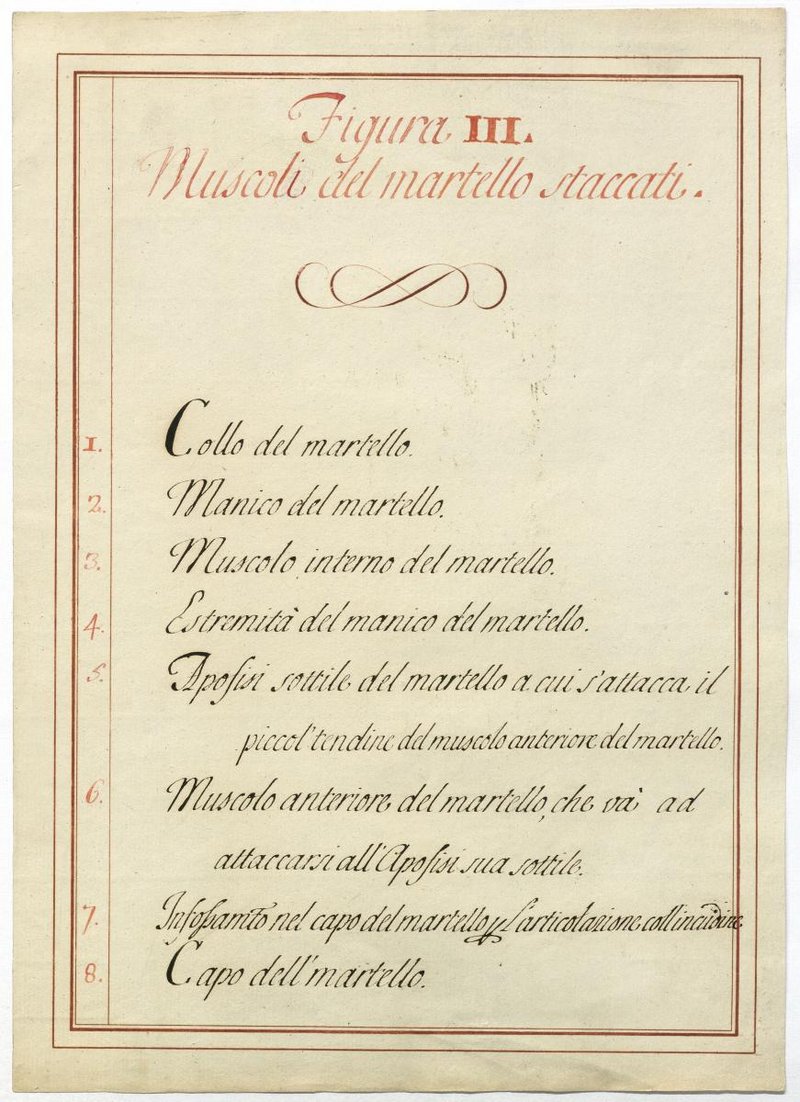 Figura III.
Muscoli del martello staccati.
1. Collo del martello.
2. Manico del martello.
3. Muscolo interno del martello.
4. Estremità del manico del martello.
5. Apofisi sottile del martello a cui s'attacca il
piccol' tendine del muscolo anteriore del martello.
6. Muscolo anteriore del martello, che và ad
attaccarsi all'Apofisi sua sottile.
7. nel capo del martello l'articolazione coll'incudine
8. Capo dell'martello.